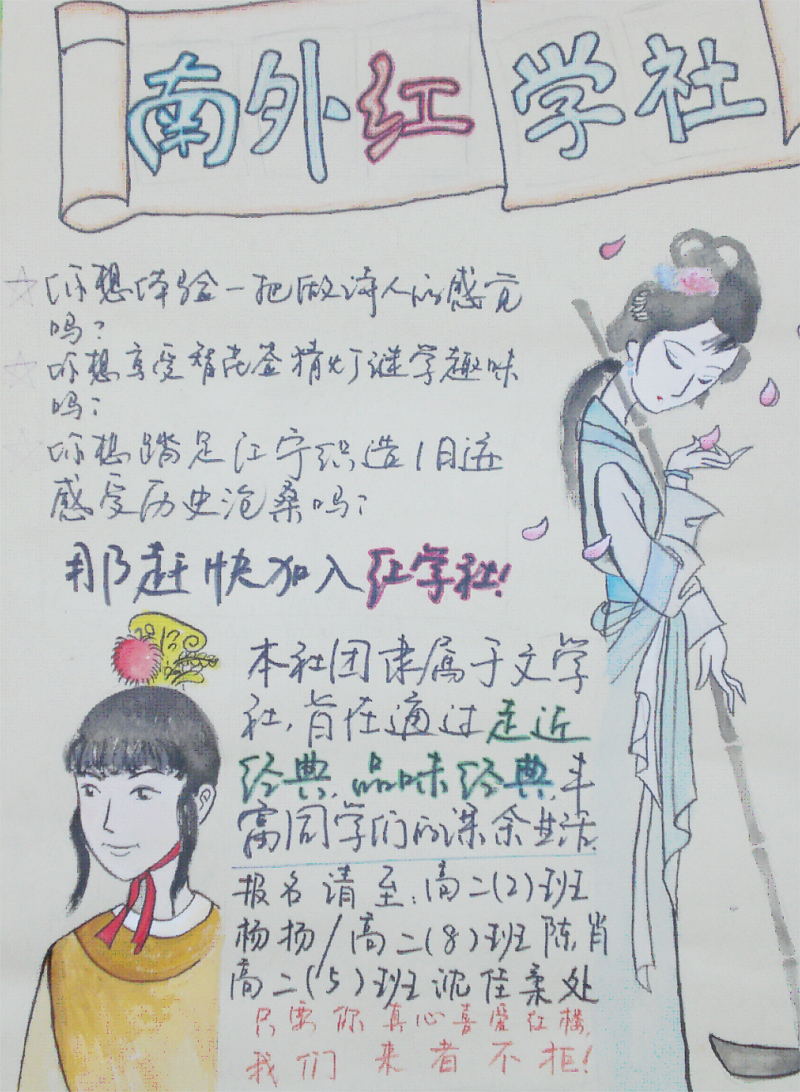 南外红学社
你想体验一把做诗人的感觉
吗?
你想享受射花签猜灯谜学趣味
吗?
你想踏足江宁织造旧迹
感受历史沧桑吗?
那赶快加入红学社!
本社团隶属于文学
社,旨在通过走近
经典,品味经典,丰
富同学们的课余生活.
报名请至:高二(2)班
杨扬/高二(8)班陈肖
高二(5)班沈佳柔处
只要你真心喜爱红楼,
我们来者不拒!